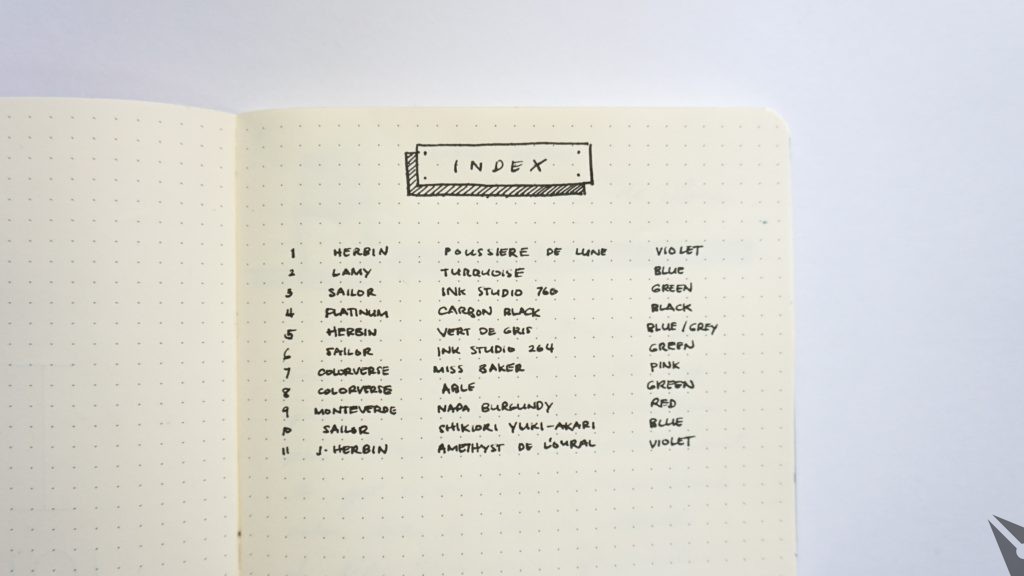 INDEX
1 HERBIN POUSSIERE DE LUNE VIOLET
2 LAMY TURQUOISE BLUE
3 SAILOR INK STUDIO 760 GREEN
4 PLATINUM CARBON BLACK BLACK
5 HERBIN VERT DE GRIS BLUE/GREY
6 SAILOR INK STUDIO 264 GREEN
7 COLORVERSE MISS BAKER PINK
8 COLORVERSE ABLE GREEN
9 MONTEVERDE NAPA BURGUNDY RED
10 SAILOR SHIKIORI YUKI-AKARI BLUE
11 J. HERBIN AMETHYST DE L'OURAL VIOLET